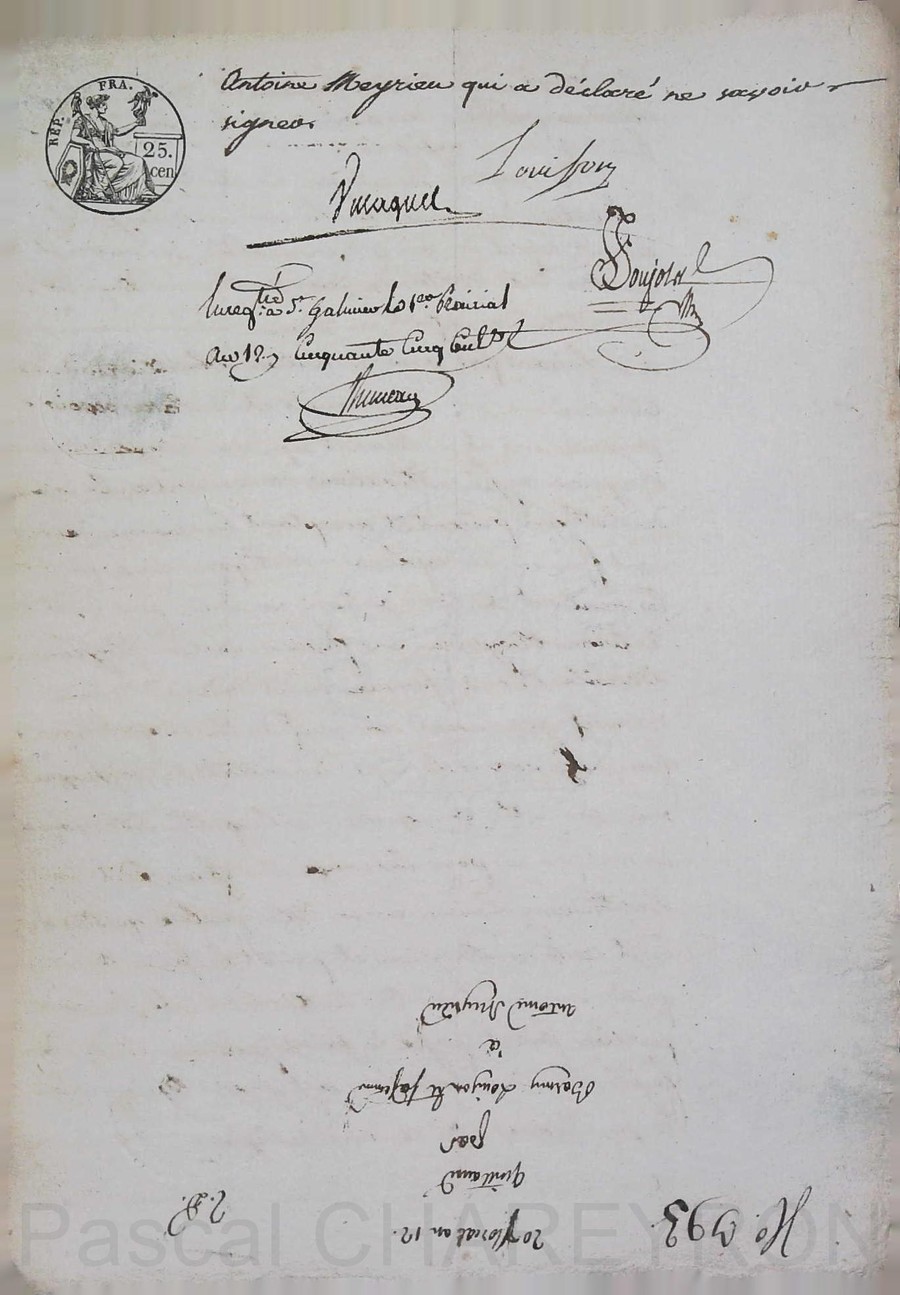 REP. FRA.
25.
cen
Antoine Meyrieu qui a déclaré ne savoir
signer.
Louisson
Vmaquel
Soujol
Enreg.tré à St Galmier le 1er Prairial
an 12. Cinquante Cinq Cent.es
20 floreal an 12.
quittance
par
Soujol et sa femme
à
antoine Meyrieu
No. 793.
Pascal CHAREYRON